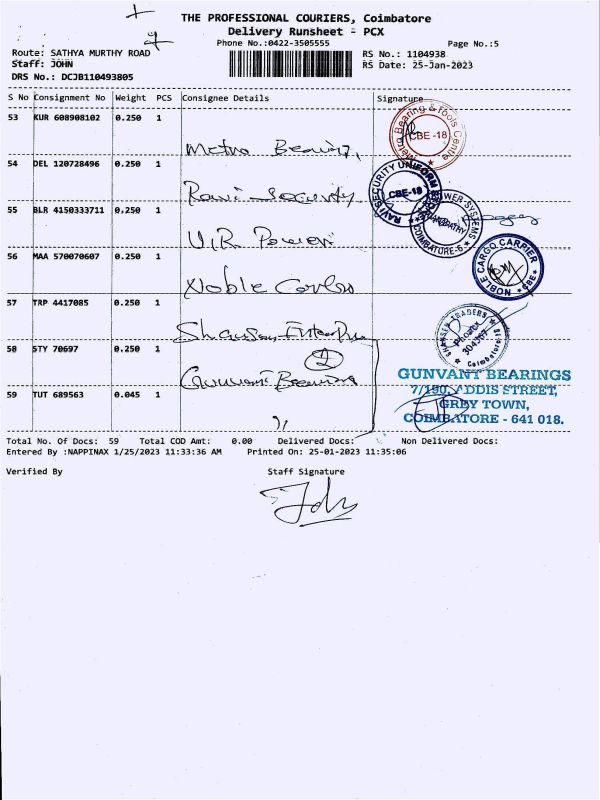 THE PROFESSIONAL COURIERS, Coimbatore
Delivery Runsheet - PCX
Phone No.:0422-3505555
Page No.:5
Route: SATHYA MURTHY ROAD
RS No.: 1104938
Staff: JOHN
RS Date: 25-Jan-2023
DRS No.: DCJB110493805
S No Consignment No Weight PCS Consignee Details Signature
53 KUR 608908102 0.250 1
Metro Bearing & Tools Centre CBE-18
Metro Bearing,
54 DEL 120728496 0.250 1
RAVI SECURITY UNIFORM CBE-18
Ravi Security
55 BLR 4150333711 0.250 1
POWER SYSTEMS COIMBATORE-6
U.R. Power
56 MAA 570070607 0.250 1
NOBLE CARGO CARRIER CBE
Noble
57 TRP 4417085 0.250 1
TRADERS Coimbatore
58 STY 70697 0.250 1
2
Gunvant Bearing
GUNVANT BEARINGS
7/190, ADDIS STREET,
59 TUT 689563 0.045 1
GREY TOWN,
COIMBATORE - 641 018.
Total No. Of Docs: 59 Total COD Amt: 0.00 Delivered Docs: Non Delivered Docs:
Entered By :NAPPINAX 1/25/2023 11:33:36 AM Printed On: 25-01-2023 11:35:06
Verified By Staff Signature